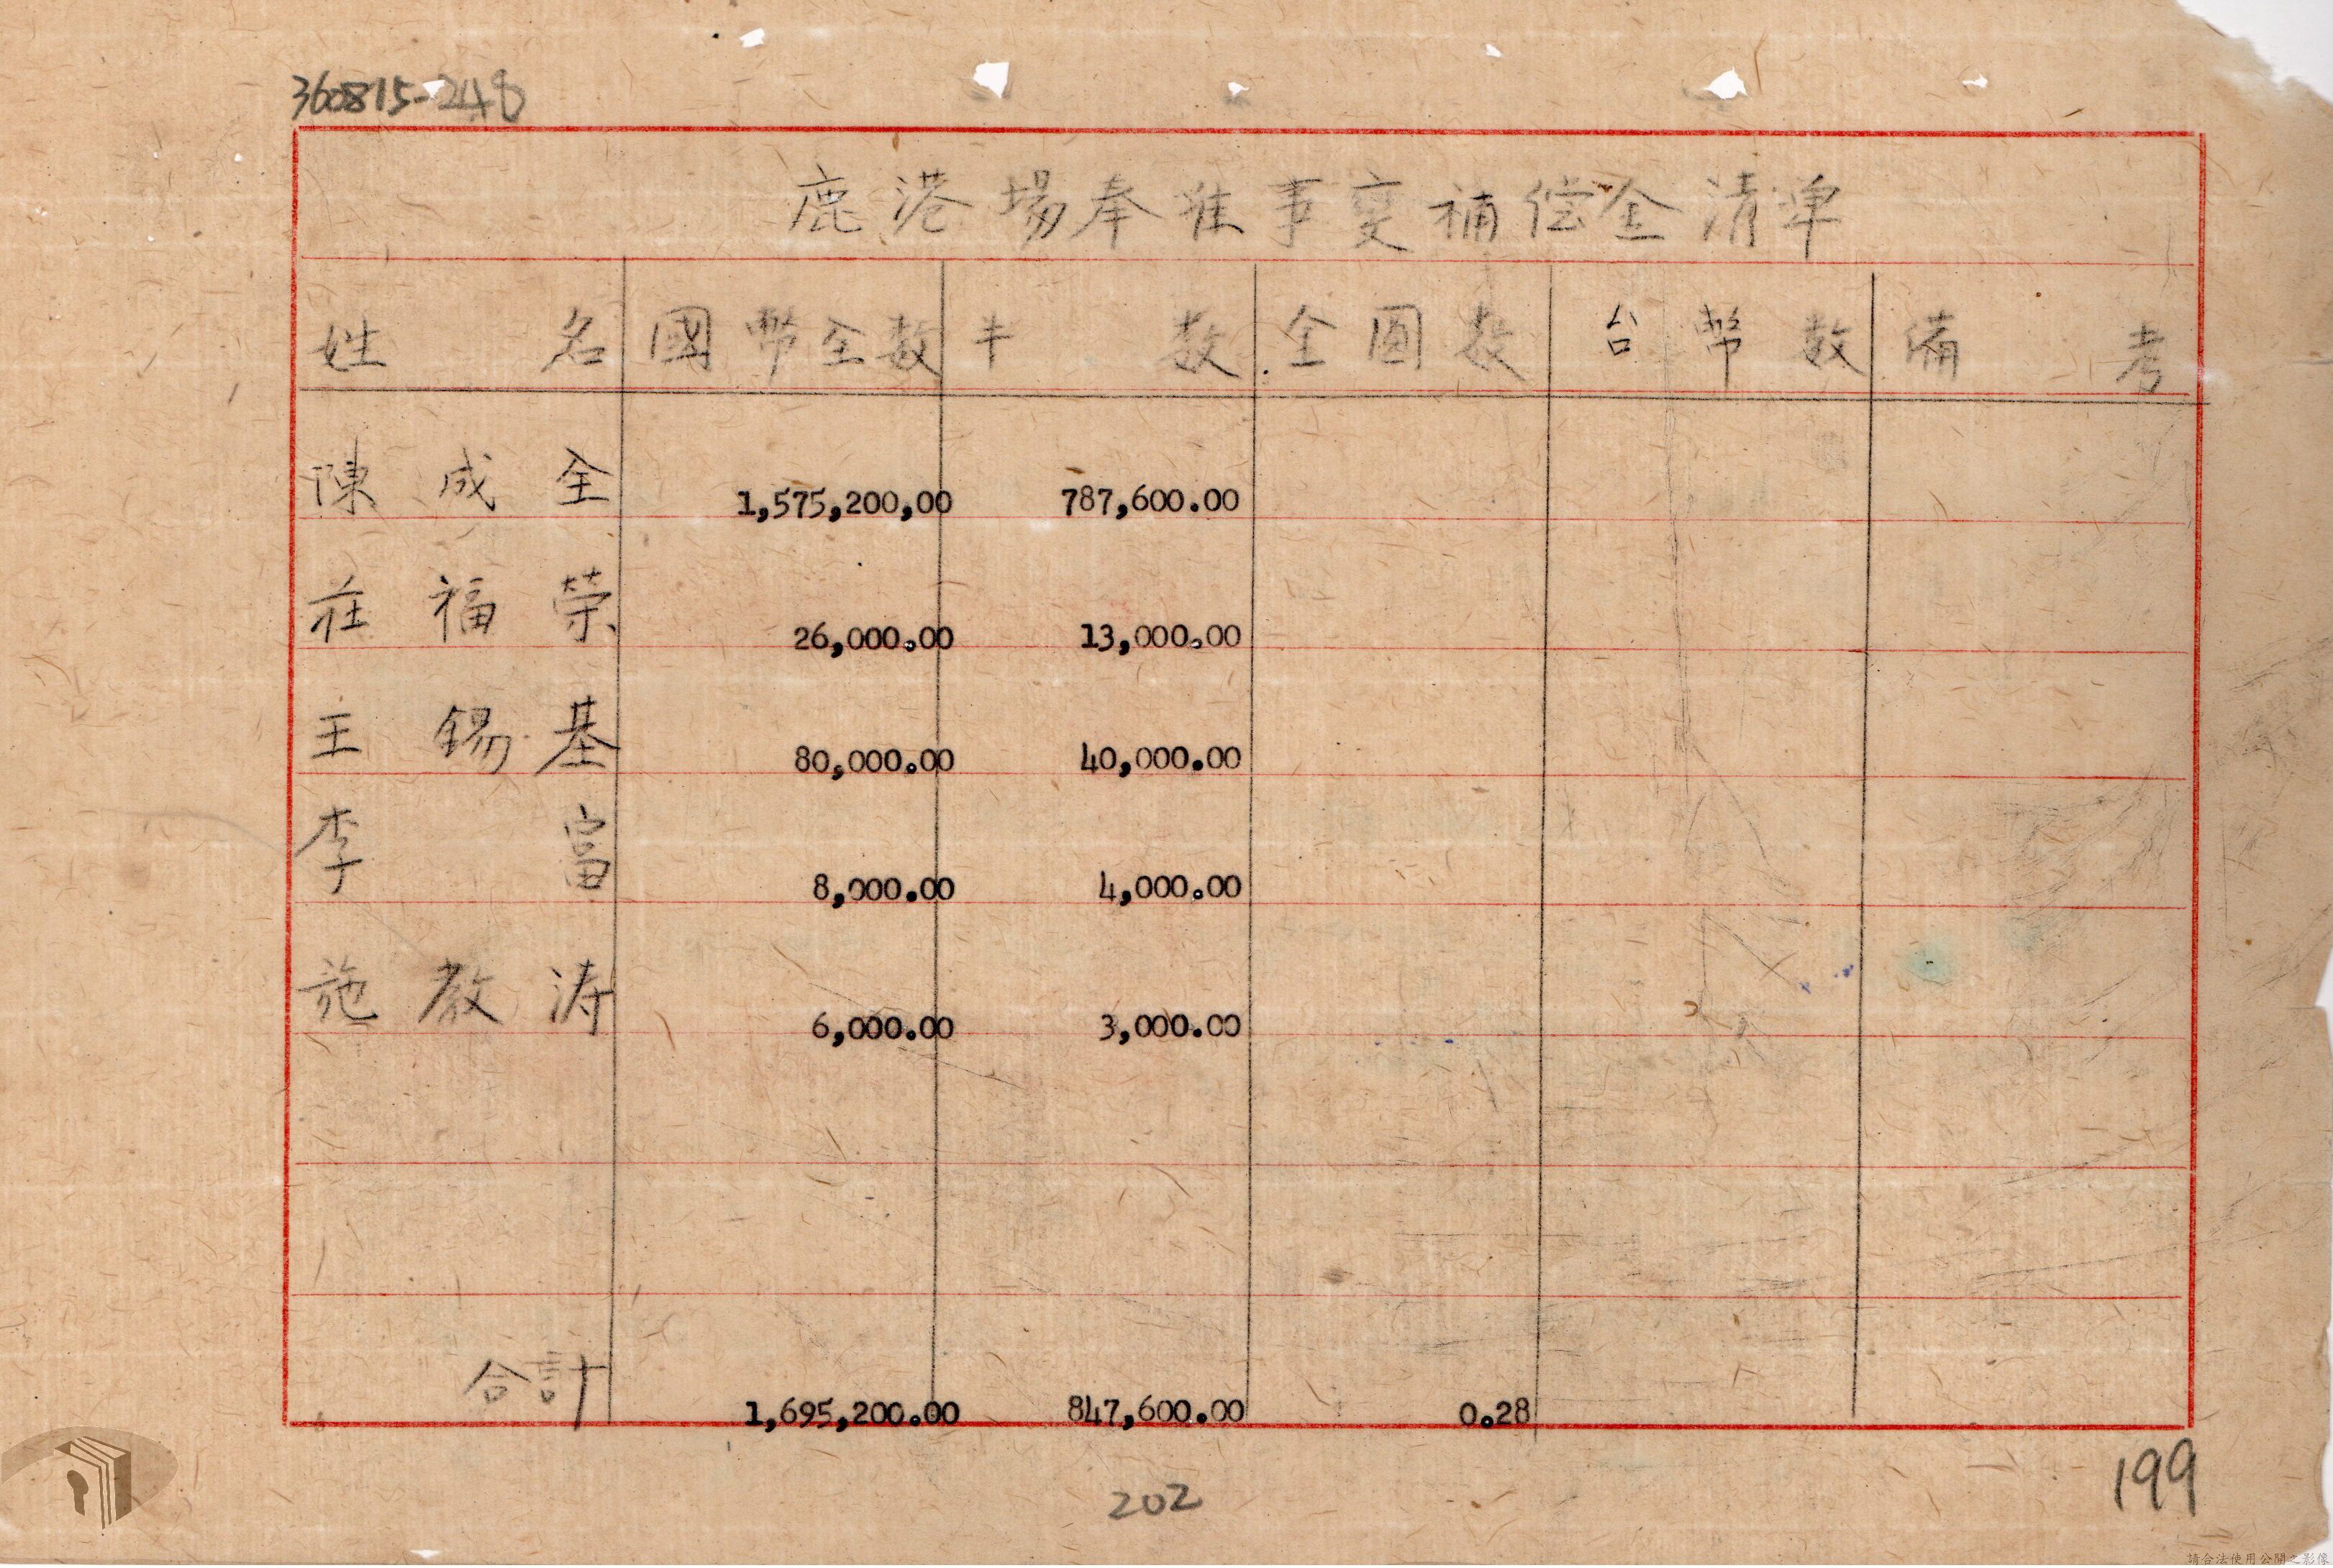 360815-248
鹿港場奉准事变補偿金清单
姓名 國幣全数 半数 金圓数 台幣数 備考
陳成全 1,575,200,00 787,600.00
莊福荣 26,000.00 13,000.00
王錫基 80,000.00 40,000.00
李富 8,000.00 4,000.00
施教涛 6,000.00 3,000.00
合計 1,695,200.00 847,600.00 0.28
199
202
請合法使用公開之影像